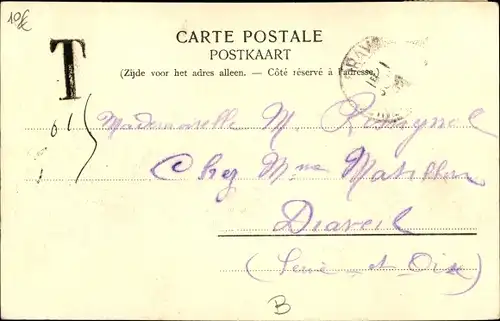 10€
T
CARTE POSTALE
POSTKAART
(Zijde voor het adres alleen. — Côté réservé à l'adresse.)
Mademoiselle M.
Chez Mme
Draveil
(Seine-et-Oise)
B